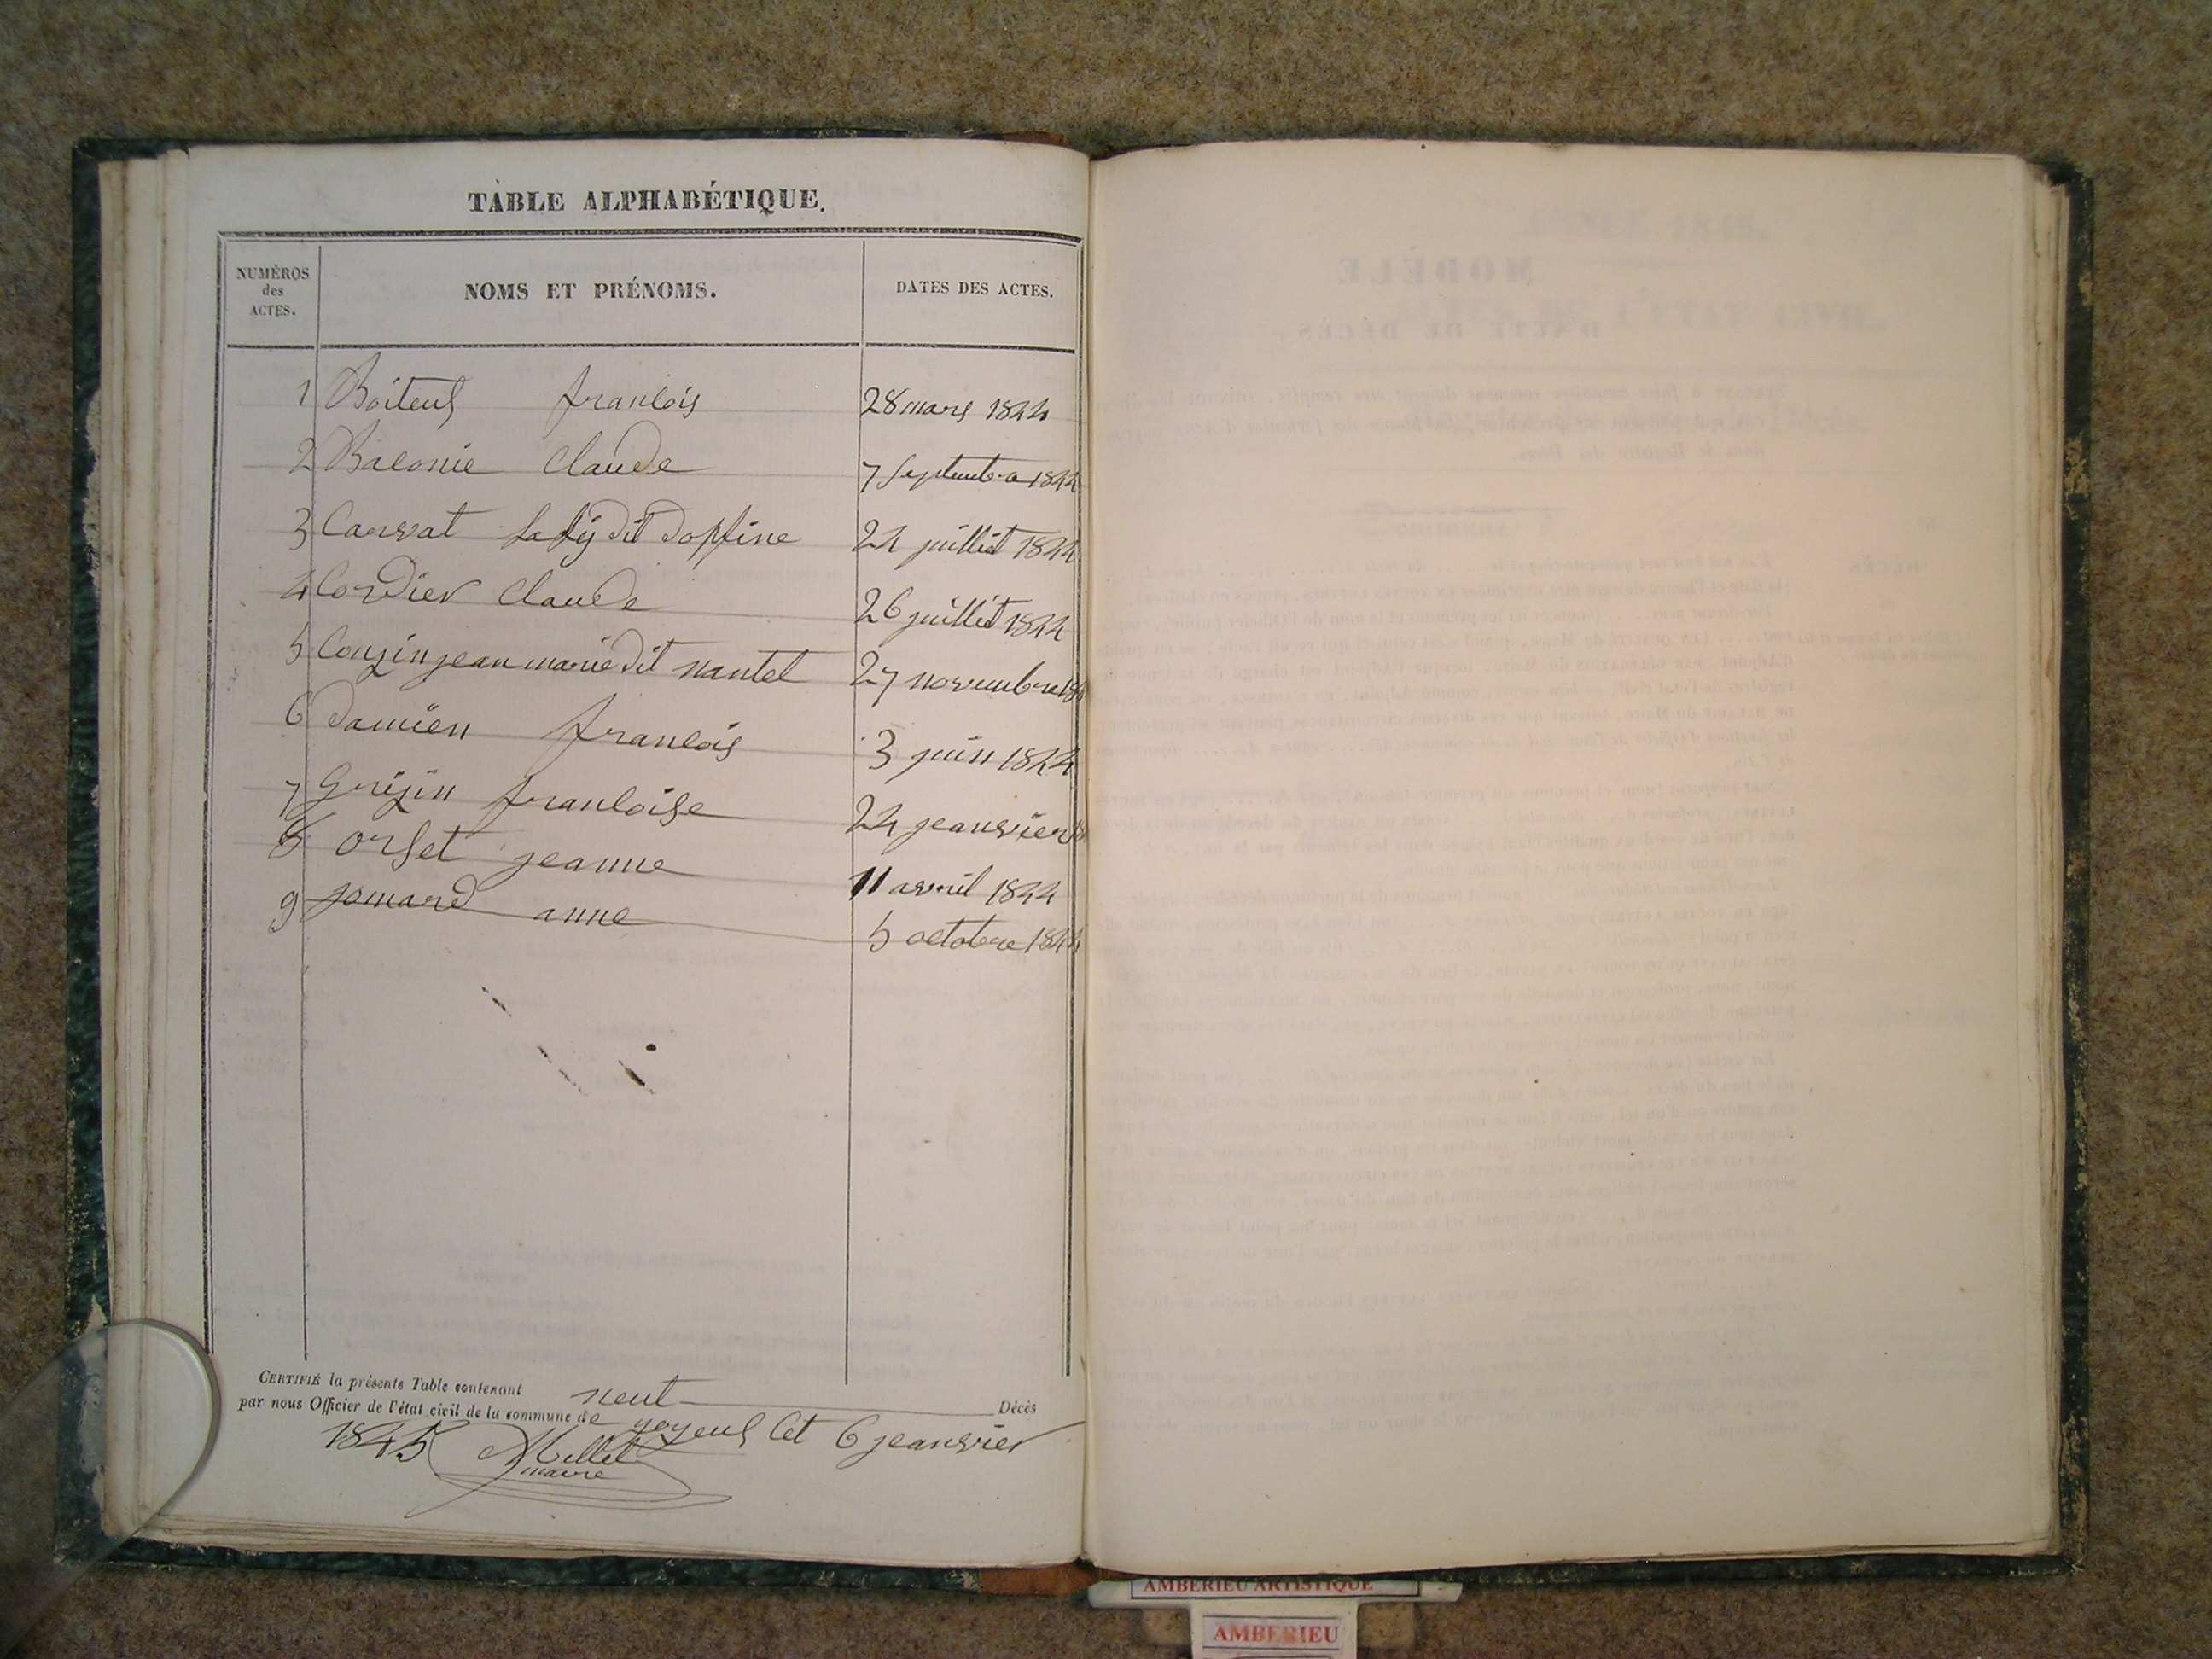 TABLE ALPHABÉTIQUE.
NUMÉROS des ACTES. NOMS ET PRÉNOMS. DATES DES ACTES.
1 Boiteux franlois 28 mars 1844
2 Baconie Claude 7 Septembre 1844
3 Carvat dit 24 juilliet 1844
4 Cordier Claude 26 juilliet 1844
5 Couzin jean marie dit nantet 27 novembre
6 Damien francois 3 juin 1844
7 Grizin franloise 24 jeanvier
8 orset jeanne 11 avril 1844
9 jomard anne 5 octobre 1844
CERTIFIÉ la présente Table contenant neuf Décès
par nous Officier de l'état civil de la commune de Cet 6 jeanvier
1845 Millet
maire
AMBERIEU ARTISTIQUE
AMBERIEU